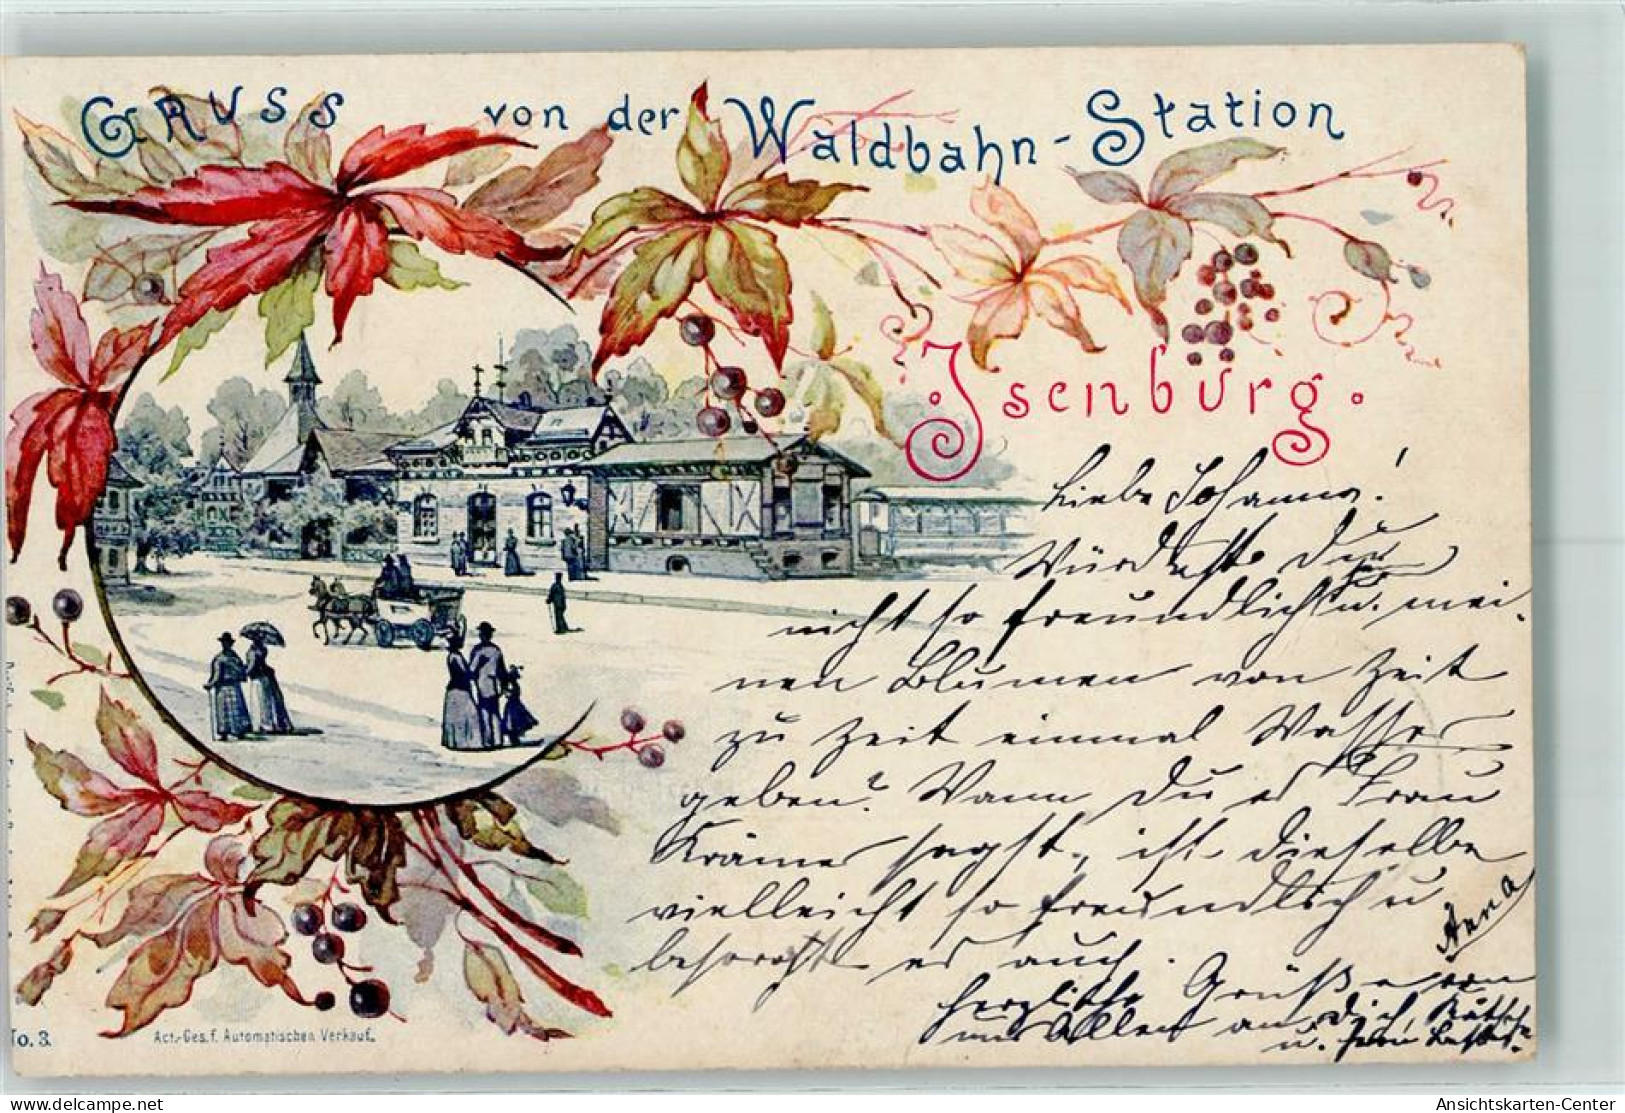 Gruss von der Waldbahn-Station
Isenburg.
Liebe Johanna!
Würdest Du
nicht so freundlich u. mei-
nen Blumen von Zeit
zu Zeit einmal Wasser
geben? Wenn Du es Frau
Krämer sagst, ist dieselbe
vielleicht so freundlich u
besorgt es auch.
herzliche Grüße von
uns Allen an Dich,
u.
Anna
No. 3.
Act.-Ges. f. Automatischen Verkauf.
Ansichtskarten-Center